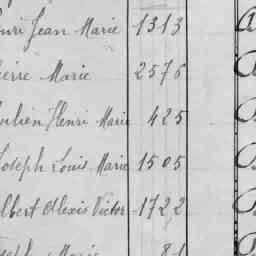 enri Jean Marie 1313
ierre Marie 2575
ulien Henri Marie 425
Joseph Louis Marie 1505
lbert Alexis Victor 1722
Marie 81